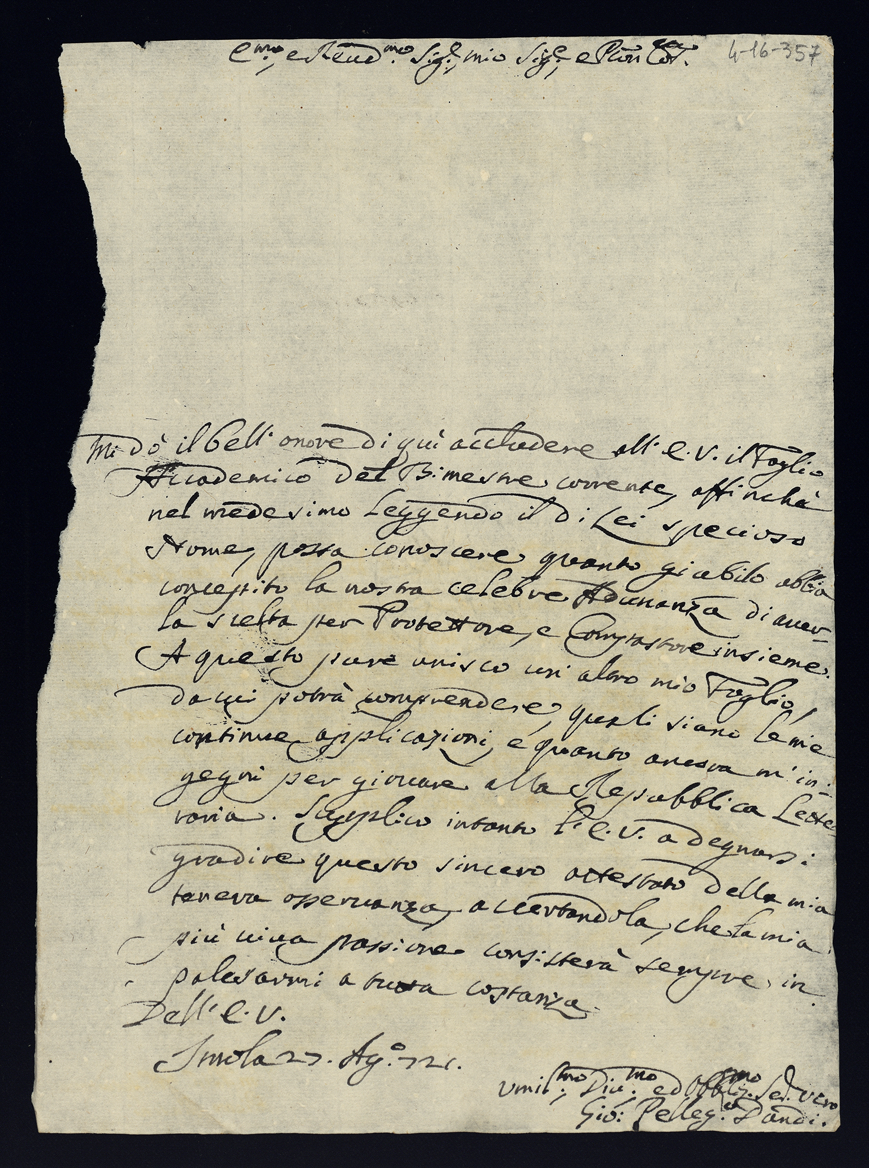 4-16-357
Em.mo, e Reud.mo Sig.r, mio Sig.r, e Pron Col.mo
Mi dò il bell' onore di quì acchiudere all' E. V. il Foglio
Accademico del Bimestre corrente, affinchè
nel medesimo leggendo il di Lei specioso
Nome, possa conoscere quanto giubilo abbia
concepito la nostra celebre Adunanza di auer-
la scelta per Protettore, e Compastore insieme.
A questo pure unisco un' altro mio Foglio,
da cui potrà comprendere, quali siano le mie
continue applicazioni, e quanto ancora m' in-
gegni per giouare alla Repubblica Lette-
raria. Supplico intanto l' E. V. a degnarsi
gradire questo sincero attestato della mia
tenera osseruanza, accertandola, che la mia
più uiua passione consisterà sempre in
palesarmi a tutta costanza
Dell' E. V.
Imola 27. Ag.o 721.
Umil.mo, Diu.mo ed Obblig.mo Se.r uero
Gio: Pelleg.o Dandi.